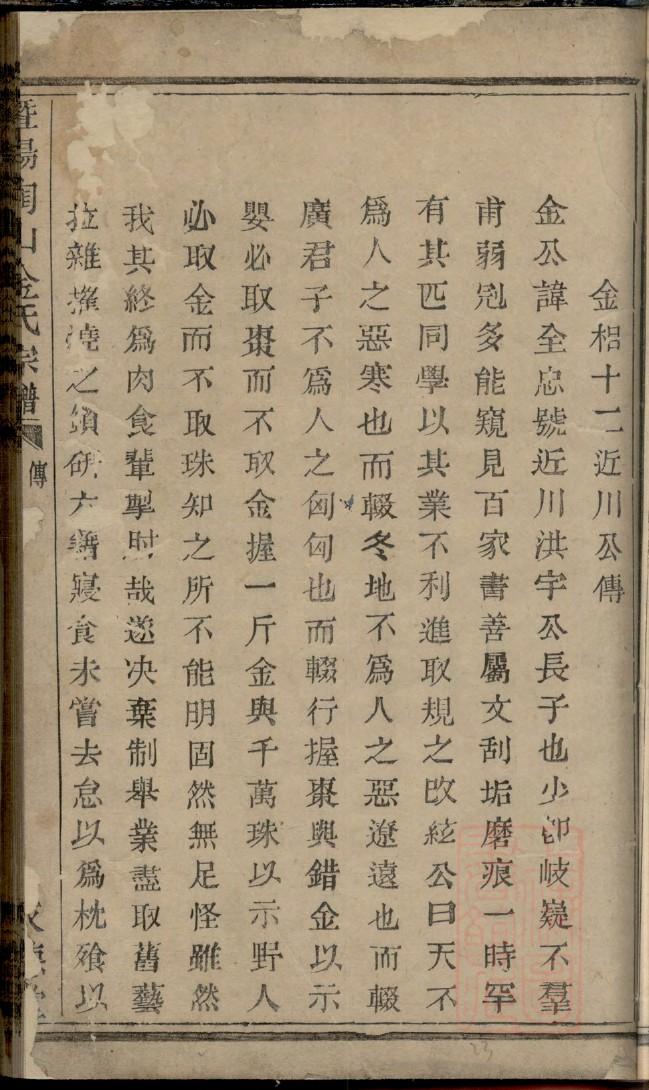 金相十二近川公傳
金公諱全忠號近川洪宇公長子也少卽岐嶷不羣
甫弱冠多能窺見百家書善屬文刮垢磨痕一時罕
有其匹同學以其業不利進取規之改絃公曰天不
爲人之惡寒也而輟冬地不爲人之惡遼遠也而輟
廣君子不爲人之匈匈也而輟行握棗與錯金以示
嬰必取棗而不取金握一斤金與千萬珠以示野人
必取金而不取珠知之所不能明固然無足怪雖然
我其終爲肉食輩掣肘哉遂决棄制舉業盡取舊藝
拉雜摧燒之鑽研六籍寢食未嘗去怠以爲枕飱以
暨陽陶山金氏宗譜
傳